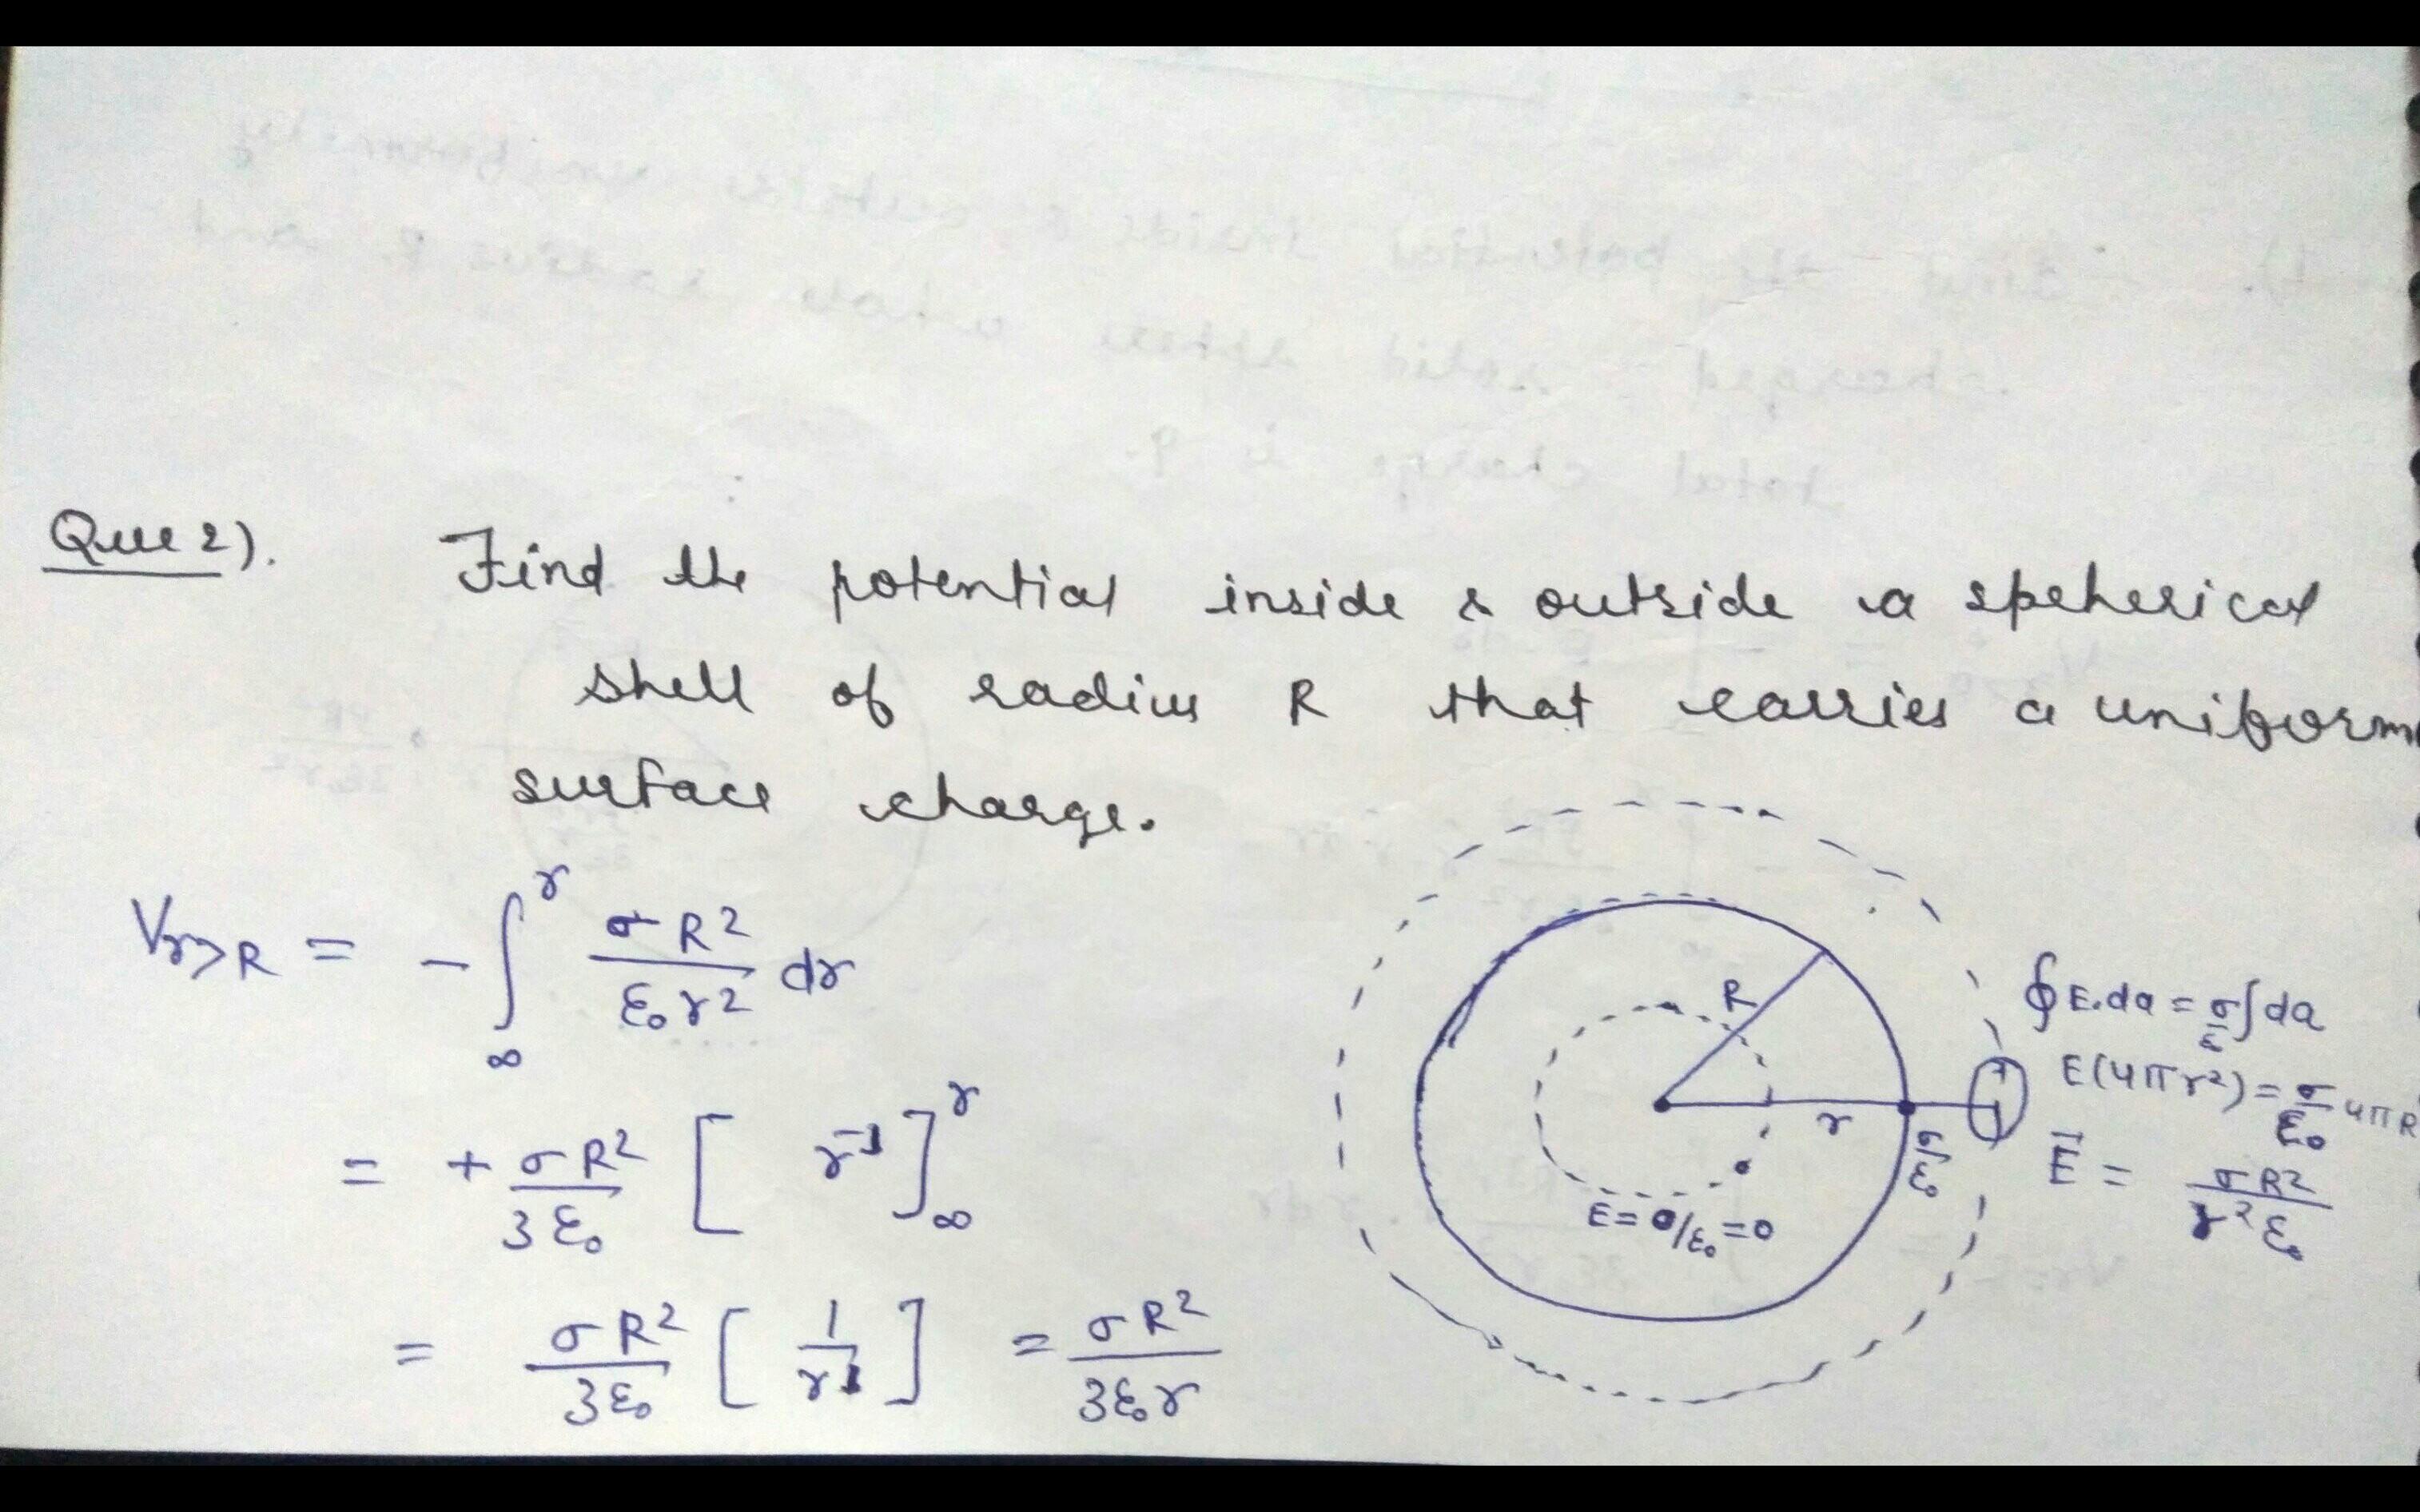 Que 2). Find the potential inside & outside a speherical
shell of radius R that carries a uniform
surface charge.
V r>R = - ∫_∞^r σR²/ε₀r² dr
= + σR²/3ε₀ [ r⁻¹ ]_∞^r
= σR²/3ε₀ [ 1/r ] = σR²/3ε₀r
R
r
σ/ε₀
E = 0/ε₀ = 0
∮E.da = σ/ε ∫da
E(4πr²) = σ/ε₀ 4πR
E⃗ = σR²/r²ε₀